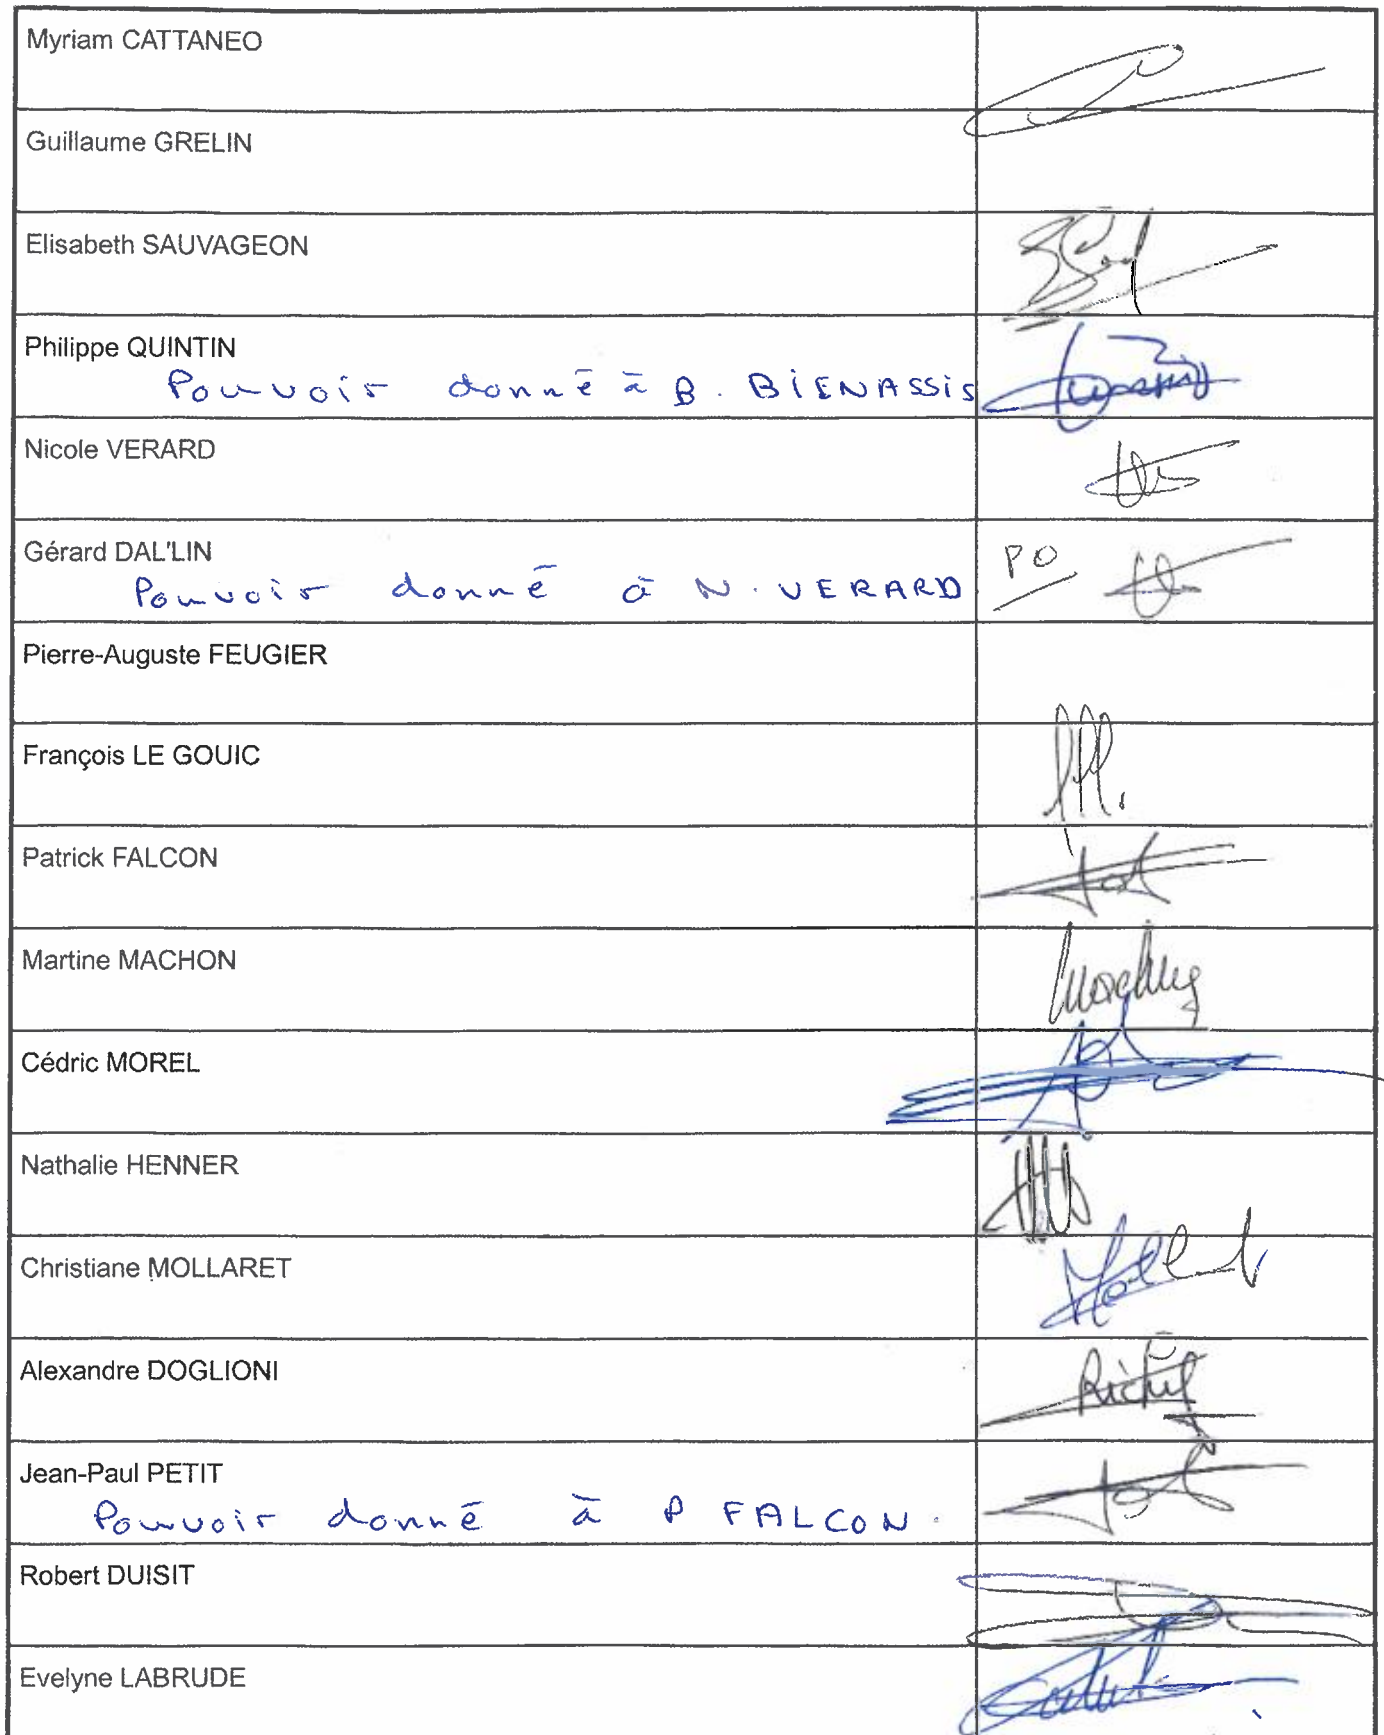 Myriam CATTANEO
Guillaume GRELIN
Elisabeth SAUVAGEON
Philippe QUINTIN
Pouvoir donné à B. BIENASSIS
Nicole VERARD
Gérard DAL'LIN
PO
Pouvoir donné à N. VERARD
Pierre-Auguste FEUGIER
François LE GOUIC
Patrick FALCON
Martine MACHON
Cédric MOREL
Nathalie HENNER
Christiane MOLLARET
Alexandre DOGLIONI
Jean-Paul PETIT
Pouvoir donné à P FALCON.
Robert DUISIT
Evelyne LABRUDE